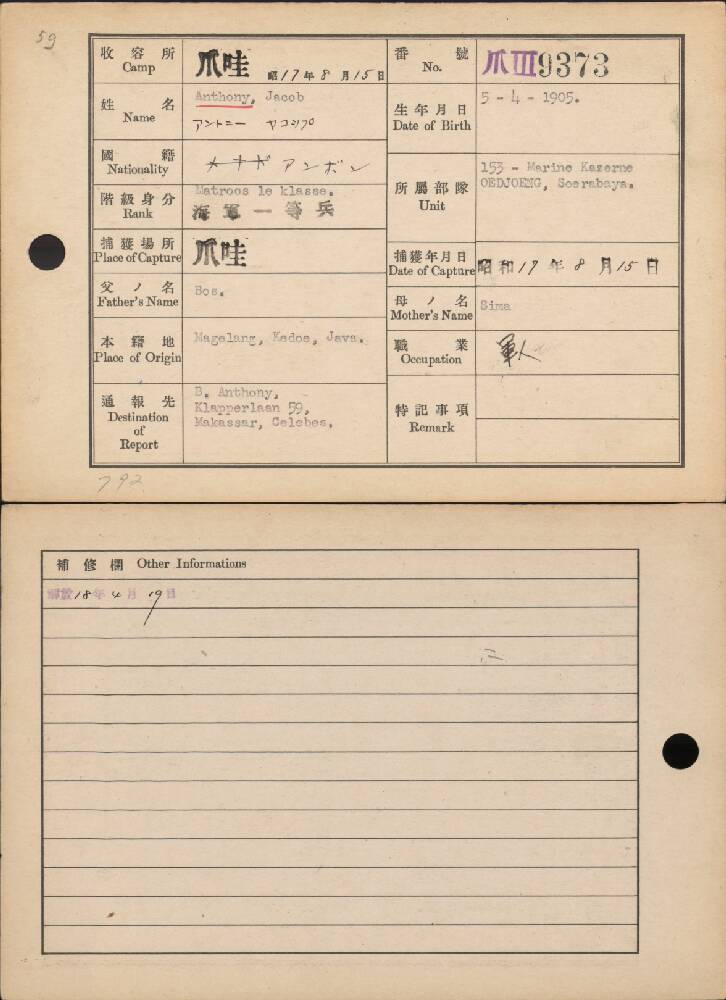 59
收容所 Camp 爪哇 昭17年8月15日
番號 No. 爪III9373
姓名 Name Anthony, Jacob
アントニー ヤコップ
生年月日 Date of Birth 5 - 4 - 1905.
國籍 Nationality アンボン
階級身分 Rank Matroos 1e klasse.
海軍一等兵
所屬部隊 Unit 153 - Marine Kazerne
OEDJOENG, Soerabaya.
捕獲場所 Place of Capture 爪哇
捕獲年月日 Date of Capture 昭和17年8月15日
父ノ名 Father's Name Bos.
母ノ名 Mother's Name Sima
本籍地 Place of Origin Magelang, Kedoe, Java.
職業 Occupation 軍人
通報先 Destination of Report B. Anthony,
Klapperlaan 59,
Makassar, Celebes.
特記事項 Remark
792
補修欄 Other Informations
解放18年4月19日